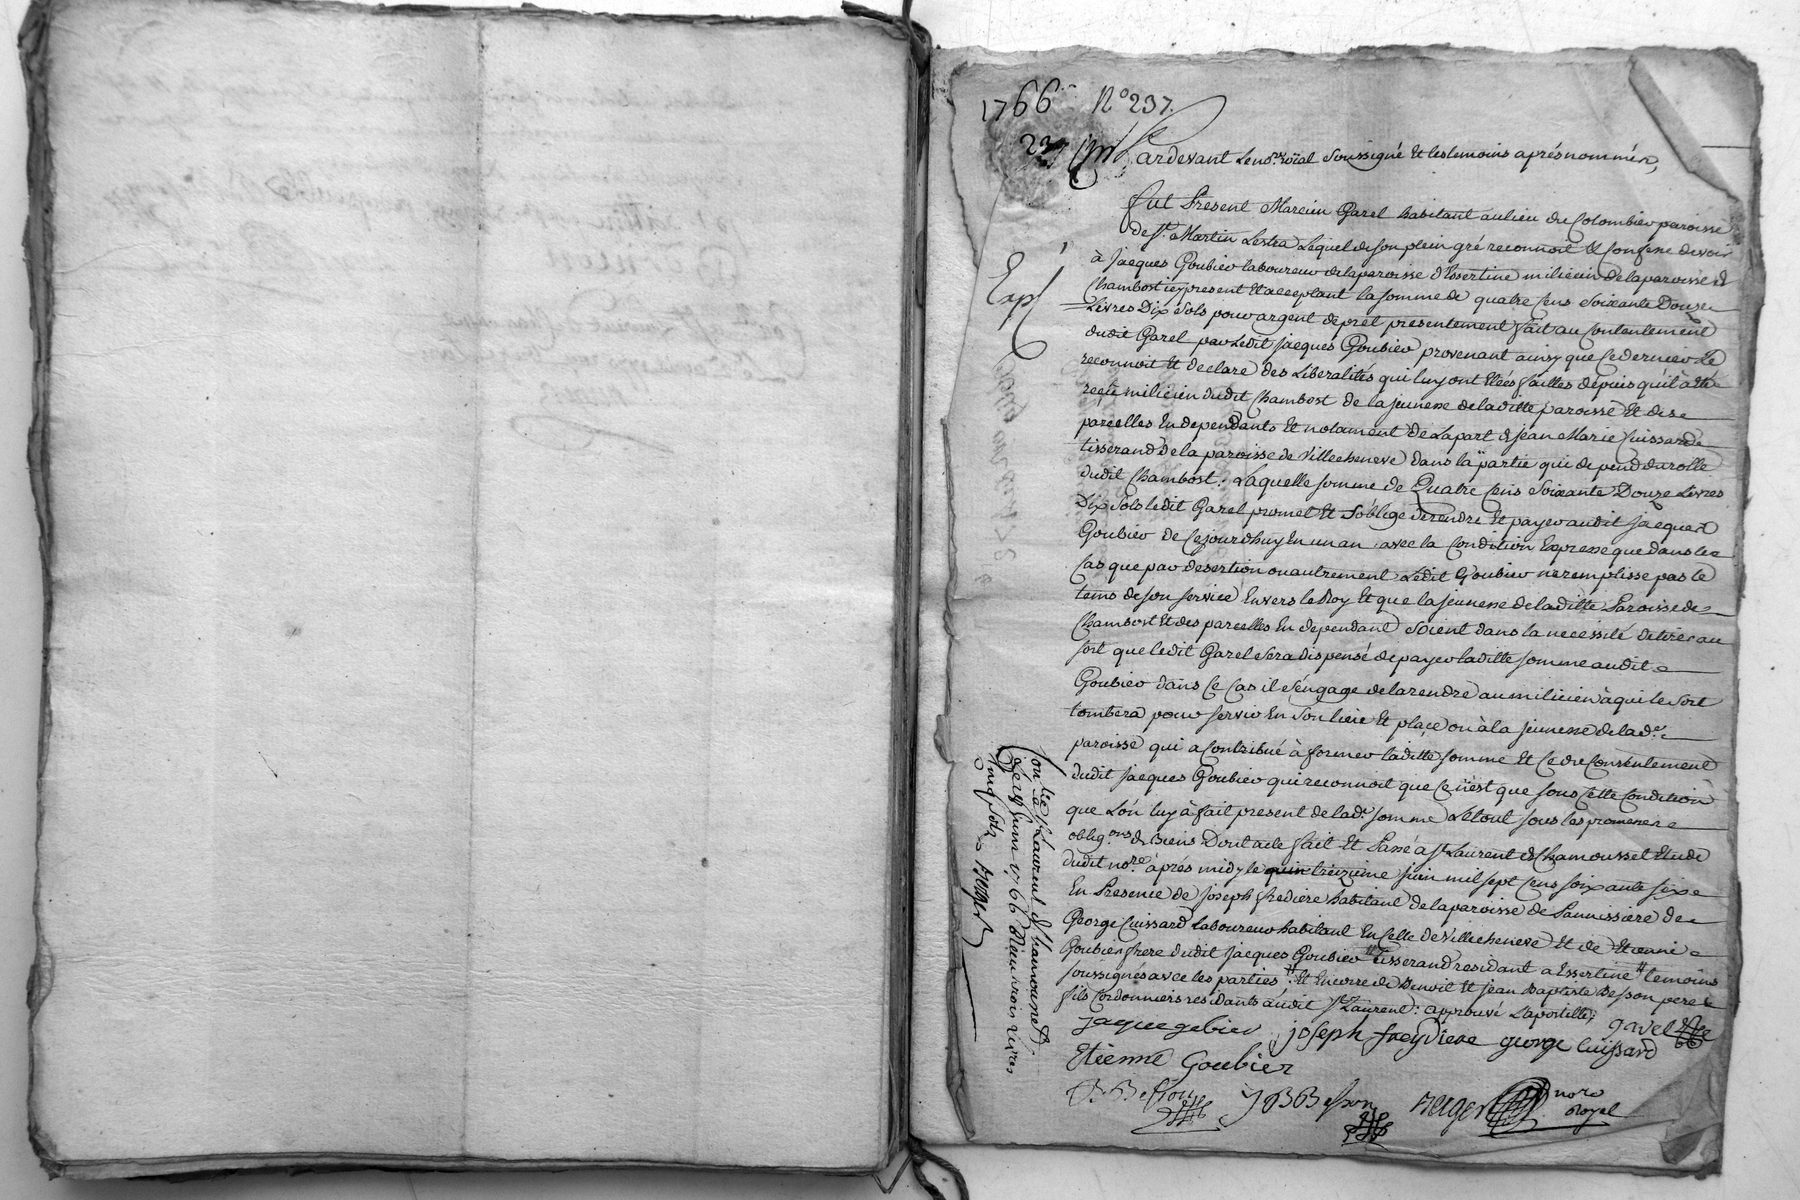 1766 N° 237.
237
Pardevant le no.re roïal soussigné et les temoins aprés nommés,
fut present Marcien Garel habitant au lieu du Colombier paroisse
de st. Martin Lestra lequel de son plein gré reconnoit et confesse devoir
à jacques Goubier laboureur de la paroisse d'Essertine milicien de la paroisse de
Chambost icy present et acceptant la somme de quatre cens soixante Douze
Livres Dix sols pour argent de prêt presentement fait au contentement
dudit Garel par ledit jacques Goubier provenant ainsy que ce dernier le
reconnoit et declare des Liberalités qui luy ont etées faittes depuis qu'il à eté
reçu milicien dudit Chambost de la jeunesse de laditte paroisse et des
parcelles en dependants et notament de la part de jean Marie Cuissard
tisserand de la paroisse de Villecheneve dans la partie qui depend du rolle
dudit Chambost. Laquelle somme de Quatre cens soixante Douze Livres
Dix sols ledit Garel promet et s'oblige de rendre et payer audit jacques
Goubier de cejourdhuy en un an avec la condition expresse que dans le
cas que par desertion ou autrement ledit Goubier ne remplisse pas le
tems de son service envers le Roy et que la jeunesse de laditte Paroisse de
Chambost et des parcelles en dependant soient dans la necessité de tirer au
sort que ledit Garel sera dispensé de payer laditte somme audit
Goubier dans ce cas il s'engage de la rendre au milicien à qui le sort
tombera pour servir en son lieu et place ou à la jeunesse de lad.e
paroisse qui a contribué à former laditte somme et ce du consentement
dudit jacques Goubier qui reconnoit que ce n'est que sous cette condition
que l'on luy à fait present de lad.e somme le tout sous les promesses
oblig.ons de Biens Dont acte fait et Passé à st. Laurent de Chamousset etude
dudit no.re aprés midy le quin treizieme juin mil sept cens soixante six
en Presence de Joseph fredière habitant de la paroisse de Pannissiere de
George Cuissard laboureur habitant en celle de Villecheneve et de Etienne
Goubier frere dudit jacques Goubier tisserand residant a Essertine temoins
soussignés avec les parties. et encore de Benoit et jean Baptiste Besson pere et
fils Cordonniers residants audit st. Laurent: approuvé l'apostille;
jaque gobier joseph freydiere george Cuissard garel
Etienne Goubier
B. Besson JB Besson Buger no.re
Royal
Exp.
Con.lé à st. Laurent de Chamousset
le 27 juin 1766 Reçu trois livres
cinq sols Buger